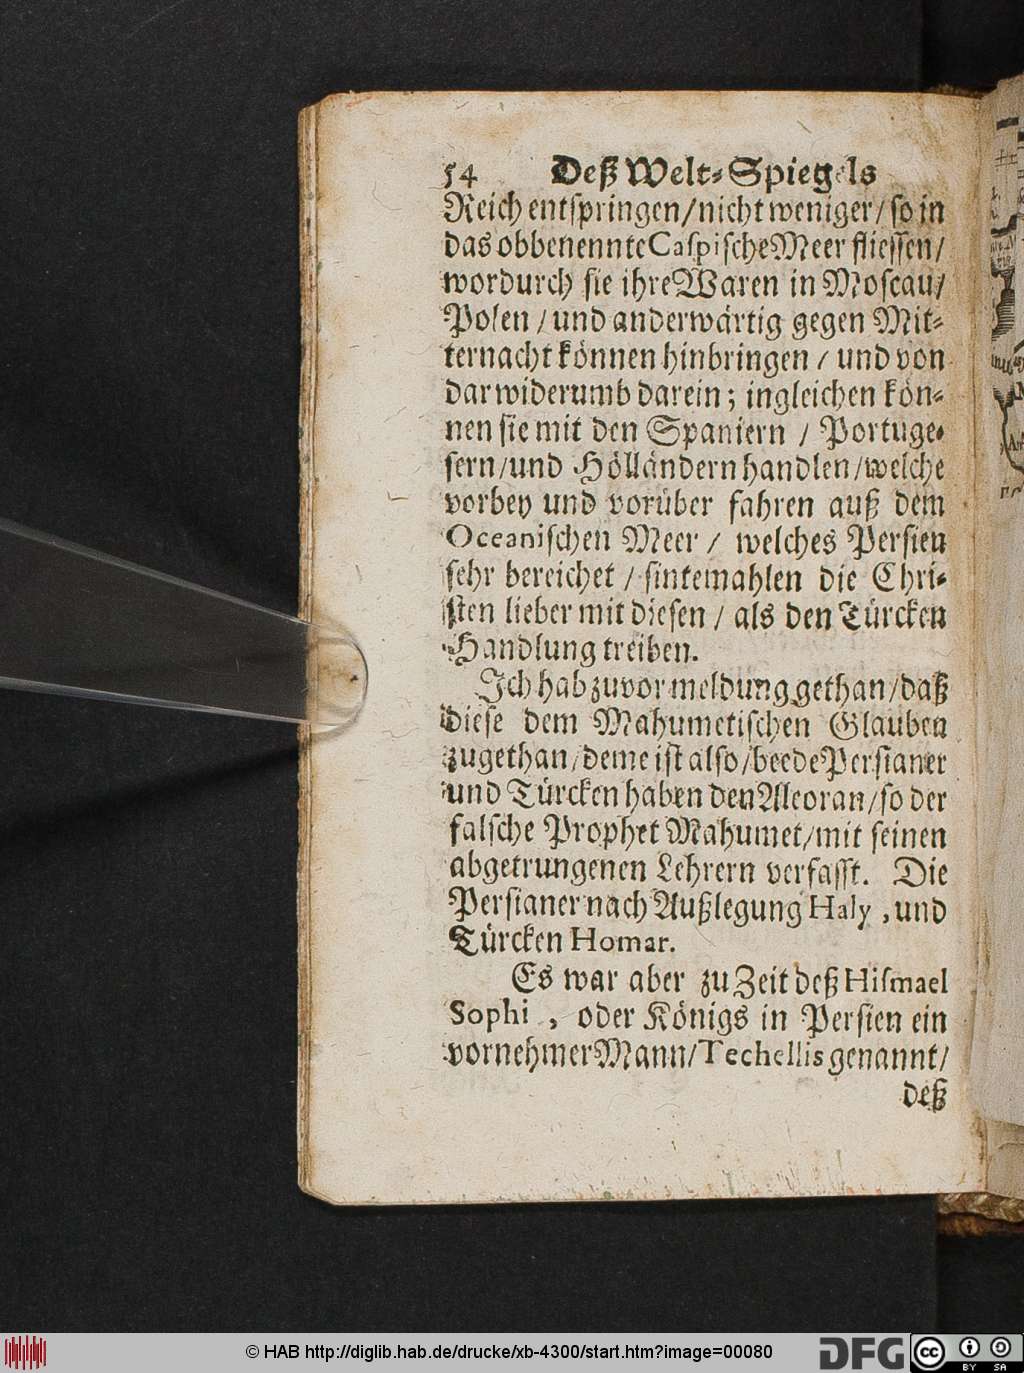 54 Deß Welt-Spiegels
Reich entspringen/nicht weniger/ so in
das obbenennte Caspische Meer fliessen/
wordurch sie ihre Waren in Moscau/
Polen / und anderwärtig gegen Mit-
ternacht können hinbringen / und von
dar widerumb darein; ingleichen kön-
nen sie mit den Spaniern / Portuge-
sern/und Hölländern handlen/welche
vorbey und vorüber fahren auß dem
Oceanischen Meer / welches Persien
sehr bereichet / sintemahlen die Chri-
sten lieber mit diesen / als den Türcken
Handlung treiben.
Ich hab zuvor meldung gethan/daß
diese dem Mahumetischen Glauben
zugethan/deme ist also/beede Persianer
und Türcken haben den Alcoran/so der
falsche Prophet Mahumet/mit seinen
abgetrungenen Lehrern verfasst. Die
Persianer nach Außlegung Haly , und
Türcken Homar.
Es war aber zu Zeit deß Hismael
Sophi , oder Königs in Persien ein
vornehmer Mann/Techellis genannt/
deß
© HAB http://diglib.hab.de/drucke/xb-4300/start.htm?image=00080
DFG
cc BY SA